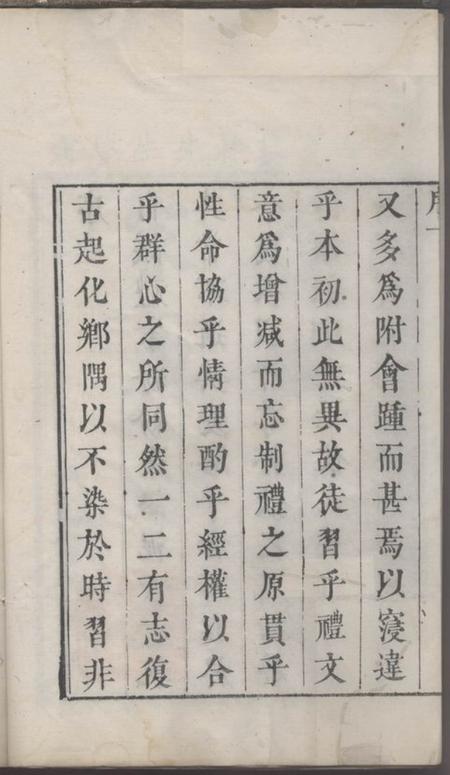 序
又多爲附會踵而甚焉以寖違
乎本初此無異故徒習乎禮文
意爲增减而忘制禮之原貫乎
性命協乎情理酌乎經權以合
乎群心之所同然一二有志復
古起化鄉隅以不染於時習非